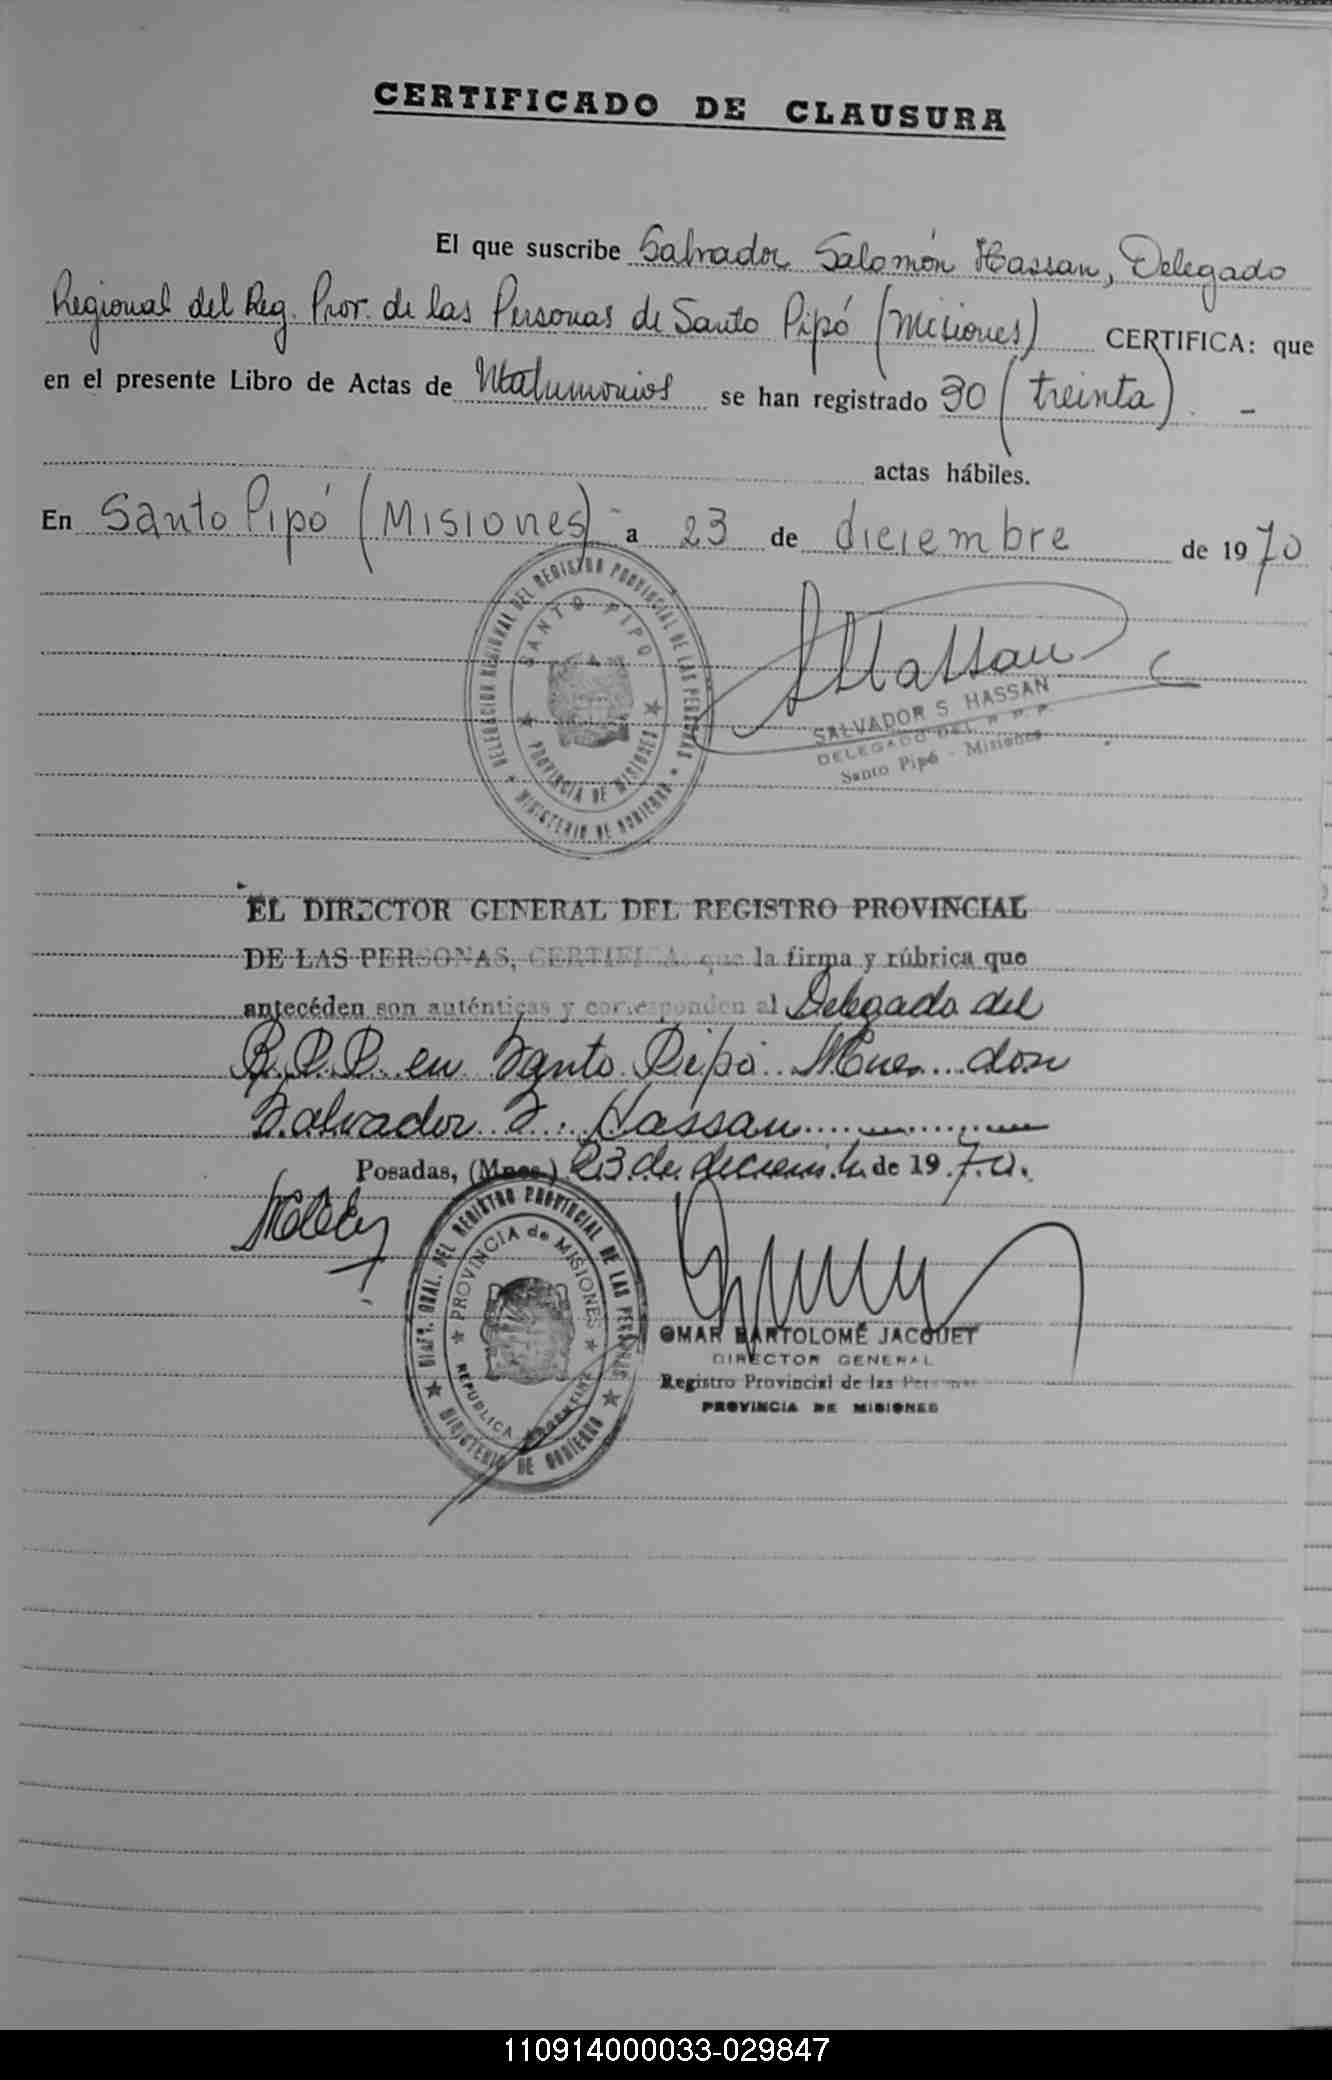 CERTIFICADO DE CLAUSURA
El que suscribe Salvador Salomón Hassan, Delegado
Regional del Reg. Prov. de las Personas de Santo Pipó (Misiones) CERTIFICA: que
en el presente Libro de Actas de Matrimonios se han registrado 30 (treinta). -
actas hábiles.
En Santo Pipó (Misiones) - a 23 de diciembre de 1970
DELEGACION REGIONAL DEL REGISTRO PROVINCIAL DE LAS PERSONAS
SANTO PIPO
PROVINCIA DE MISIONES
MINISTERIO DE GOBIERNO
SHassan
SALVADOR S. HASSAN
DELEGADO DEL R. P. P.
Santo Pipó - Misiones
EL DIRECTOR GENERAL DEL REGISTRO PROVINCIAL
DE LAS PERSONAS, CERTIFICA: que la firma y rúbrica que
antecéden son auténticas y corresponden al Delegado del
R.P.P. en Santo Pipó Mnes. don
Salvador S. Hassan
Posadas, (Mnes.) 23 de diciembre de 1970.
GRAL. DEL REGISTRO PROVINCIAL DE LAS PERSONAS
PROVINCIA de MISIONES
REPUBLICA ARGENTINA
MINISTERIO DE GOBIERNO
OMAR BARTOLOMÉ JACQUET
DIRECTOR GENERAL
Registro Provincial de las Personas
PROVINCIA DE MISIONES
110914000033-029847